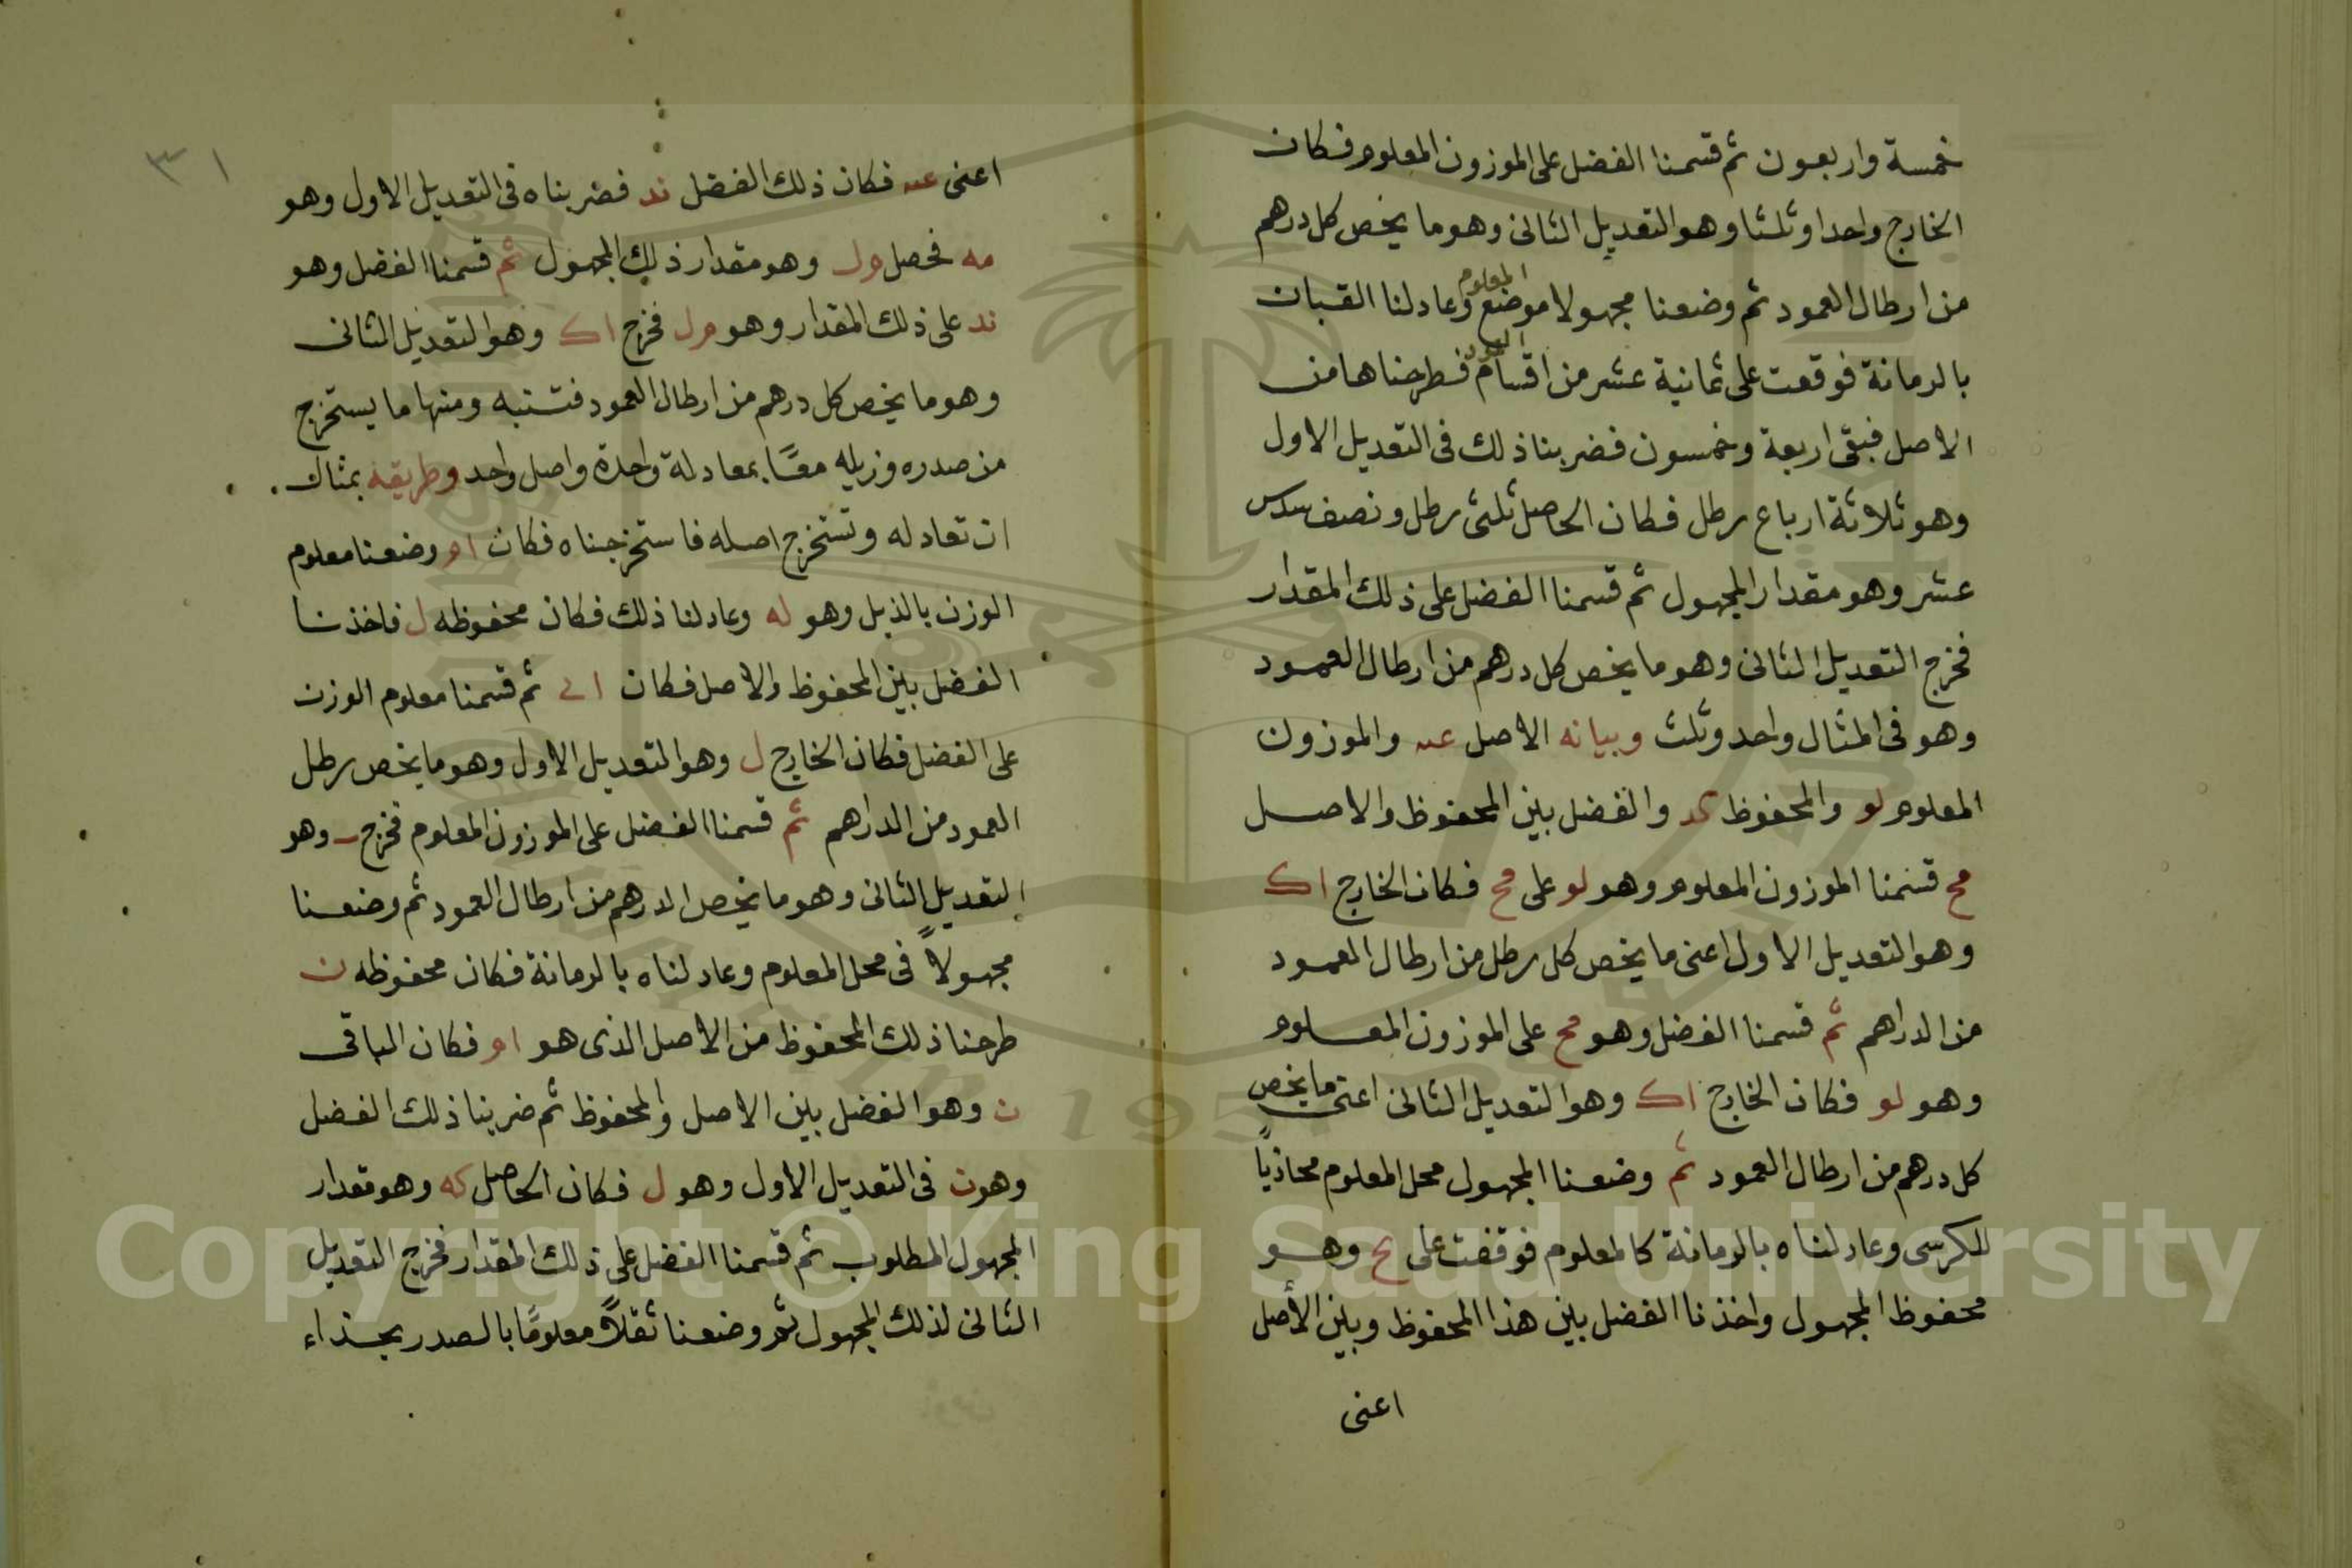 خمسة واربعون ثم قسمنا الفضل على الموزون المعلوم فكان
الخارج واحدا وثلثا وهو التعديل الثانى وهو ما يخص كل درهم
من ارطال العمود ثم وضعنا مجهولا موضع المعلوم وعادلنا القبان
بالرمانة فوقعت على ثمانية عشر من اقسام العمود فطرحناها من
الاصل فبقى اربعة وخمسون فضربنا ذلك فى التعديل الاول
وهو ثلاثة ارباع رطل فكان الحاصل ثلثى رطل ونصف سدس
عشر وهو مقدار المجهول ثم قسمنا الفضل على ذلك المقدار
فخرج التعديل الثانى وهو ما يخص كل درهم من ارطال العمود
وهو فى المثال واحد وثلث وبيانه الاصل عه والموزون
المعلوم لو والمحفوظ كد والفضل بين المحفوظ والاصل
مح قسمنا الموزون المعلوم وهو لو على مح فكان الخارج اك
وهو التعديل الاول اعنى ما يخص كل رطل من ارطال العمود
من الدراهم ثم قسمنا الفضل وهو مح على الموزون المعلوم
وهو لو فكان الخارج اك وهو التعديل الثانى اعنى ما يخص
كل درهم من ارطال العمود ثم وضعنا المجهول محل المعلوم محاذياً
للكرسى وعادلناه بالرمانة كالمعلوم فوقفت على يح وهو
محفوظ المجهول واخذنا الفضل بين هذا المحفوظ وبين الأصل
اعنى
٣١
اعنى عه فكان ذلك الفضل ند فضربناه فى التعديل الاول وهو
مه فحصل مل وهو مقدار ذلك المجهول ثم قسمنا الفضل وهو
ند على ذلك المقدار وهو مل فخرج اك وهو التعديل الثانى
وهو ما يخص كل درهم من ارطال العمود فتنبه ومنها ما يستخرج
من صدره وزيله معًا بمعادلة واحدة واصل واحد وطريقه بمثال
ان تعادله وتستخرج اصله فاستخرجناه فكان ام وضعنا معلوم
الوزن بالذيل وهو له وعادلنا ذلك فكان محفوظه ل فاخذنا
الفضل بين المحفوظ والاصل فكان اى ثم قسمنا معلوم الوزن
على الفضل فكان الخارج ل وهو التعديل الاول وهو ما يخص رطل
العمود من الدراهم ثم قسمنا الفضل على الموزون المعلوم فخرج ب وهو
التعديل الثانى وهو ما يخص الدرهم من ارطال العمود ثم وضعنا
مجهولاً فى محل المعلوم وعادلناه بالرمانة فكان محفوظه ن
طرحنا ذلك المحفوظ من الاصل الذى هو ام فكان الباقى
ن وهو الفضل بين الاصل والمحفوظ ثم ضربنا ذلك الفضل
وهو ن فى التعديل الاول وهو ل فكان الحاصل كه وهو مقدار
المجهول المطلوب ثم قسمنا الفضل على ذلك المقدار فخرج التعديل
الثانى لذلك المجهول ثم وضعنا ثقلاً معلومًا بالصدر بحذاء
Copyright © King Saud University